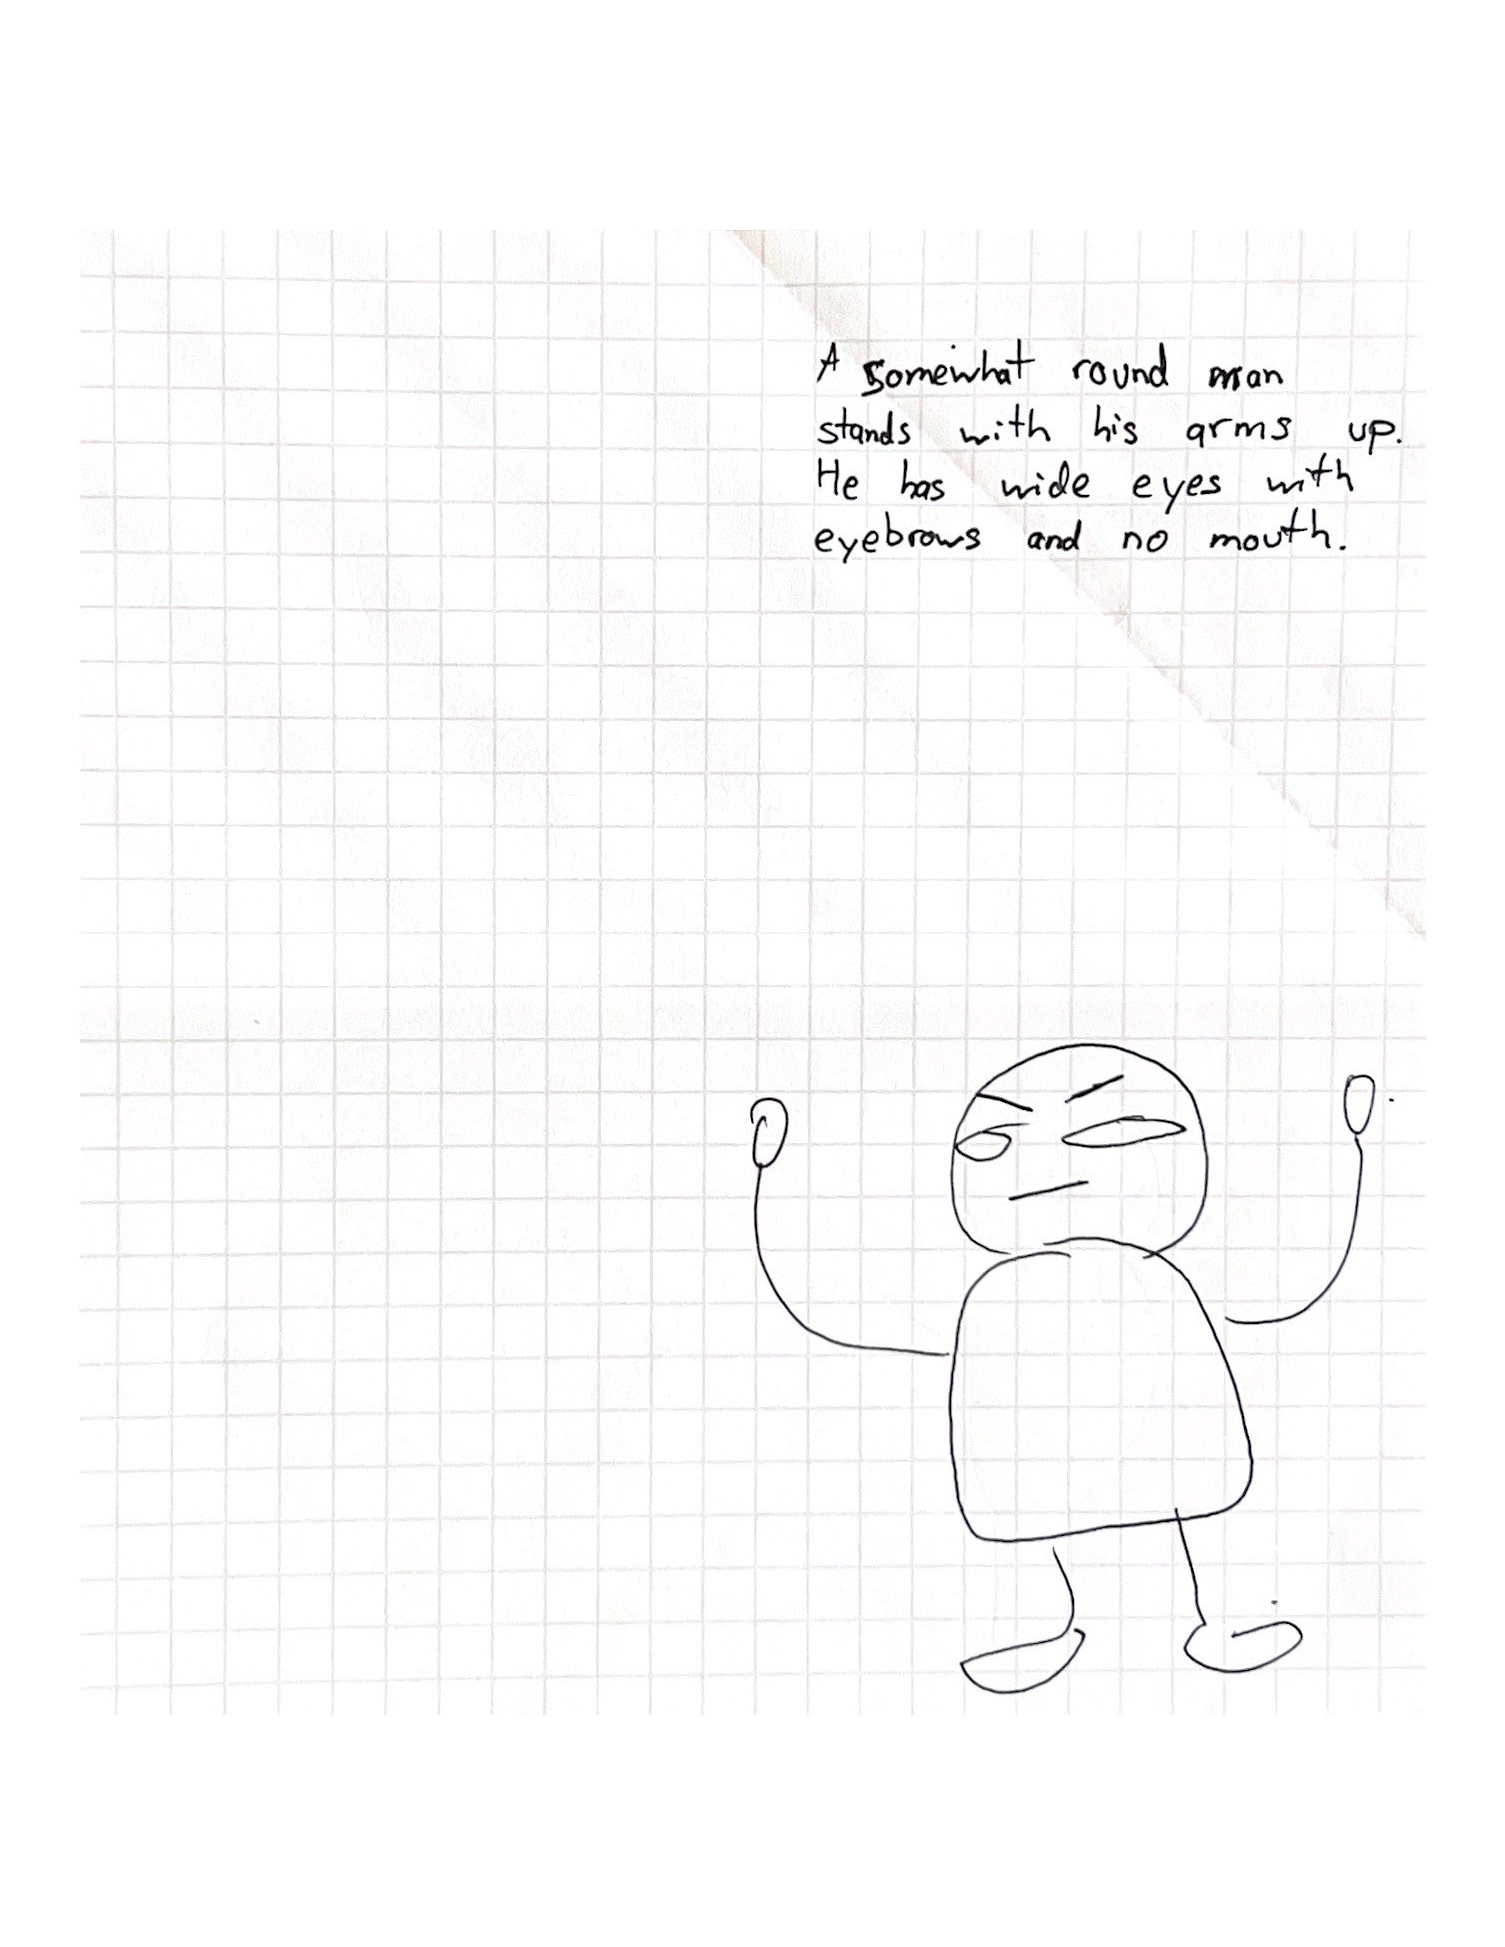 A somewhat round man
stands with his arms up.
He has wide eyes with
eyebrows and no mouth.